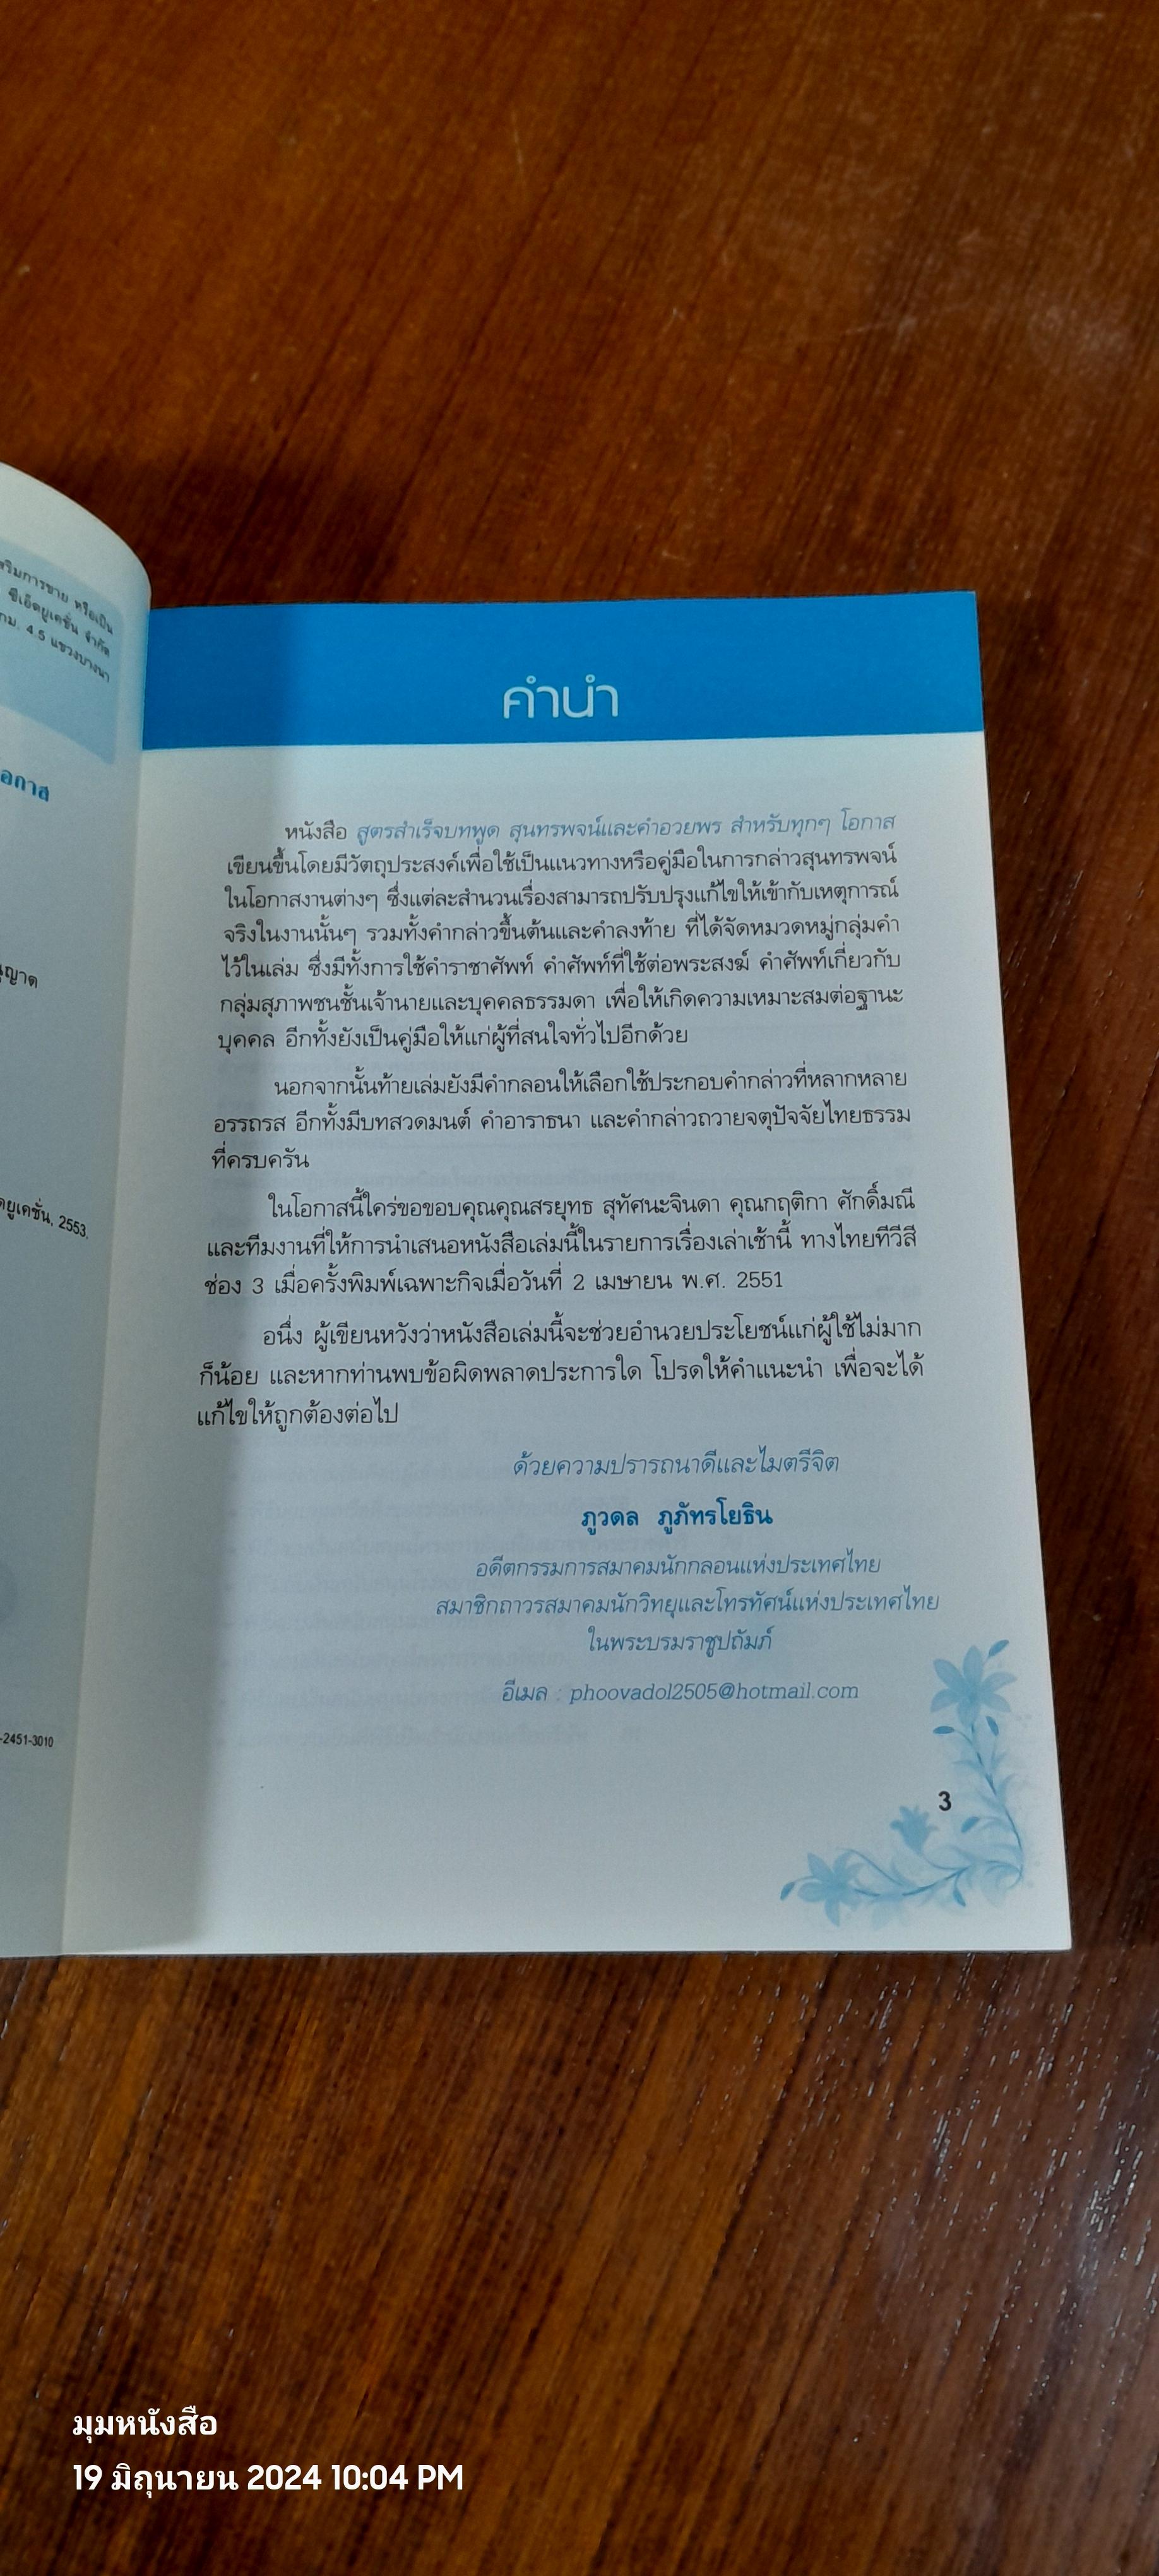 ริมการขาย หรือเป็น
ซีเอ็ดยูเคชั่น จำกัด
กม. 4.5 แขวงบางนา
อกาส
ญาต
ยูเคชั่น, 2553.
-2451-3010
คำนำ
หนังสือ สูตรสำเร็จบทพูด สุนทรพจน์และคำอวยพร สำหรับทุกๆ โอกาส
เขียนขึ้นโดยมีวัตถุประสงค์เพื่อใช้เป็นแนวทางหรือคู่มือในการกล่าวสุนทรพจน์
ในโอกาสงานต่างๆ ซึ่งแต่ละสำนวนเรื่องสามารถปรับปรุงแก้ไขให้เข้ากับเหตุการณ์
จริงในงานนั้นๆ รวมทั้งคำกล่าวขึ้นต้นและคำลงท้าย ที่ได้จัดหมวดหมู่กลุ่มคำ
ไว้ในเล่ม ซึ่งมีทั้งการใช้คำราชาศัพท์ คำศัพท์ที่ใช้ต่อพระสงฆ์ คำศัพท์เกี่ยวกับ
กลุ่มสุภาพชนชั้นเจ้านายและบุคคลธรรมดา เพื่อให้เกิดความเหมาะสมต่อฐานะ
บุคคล อีกทั้งยังเป็นคู่มือให้แก่ผู้ที่สนใจทั่วไปอีกด้วย
นอกจากนั้นท้ายเล่มยังมีคำกลอนให้เลือกใช้ประกอบคำกล่าวที่หลากหลาย
อรรถรส อีกทั้งมีบทสวดมนต์ คำอาราธนา และคำกล่าวถวายจตุปัจจัยไทยธรรม
ที่ครบครัน
ในโอกาสนี้ใคร่ขอขอบคุณคุณสรยุทธ สุทัศนะจินดา คุณกฤติกา ศักดิ์มณี
และทีมงานที่ให้การนำเสนอหนังสือเล่มนี้ในรายการเรื่องเล่าเช้านี้ ทางไทยทีวีสี
ช่อง 3 เมื่อครั้งพิมพ์เฉพาะกิจเมื่อวันที่ 2 เมษายน พ.ศ. 2551
อนึ่ง ผู้เขียนหวังว่าหนังสือเล่มนี้จะช่วยอำนวยประโยชน์แก่ผู้ใช้ไม่มาก
ก็น้อย และหากท่านพบข้อผิดพลาดประการใด โปรดให้คำแนะนำ เพื่อจะได้
แก้ไขให้ถูกต้องต่อไป
ด้วยความปรารถนาดีและไมตรีจิต
ภูวดล ภูภัทรโยธิน
อดีตกรรมการสมาคมนักกลอนแห่งประเทศไทย
สมาชิกถาวรสมาคมนักวิทยุและโทรทัศน์แห่งประเทศไทย
ในพระบรมราชูปถัมภ์
อีเมล : phoovadol2505@hotmail.com
3
มุมหนังสือ
19 มิถุนายน 2024 10:04 PM